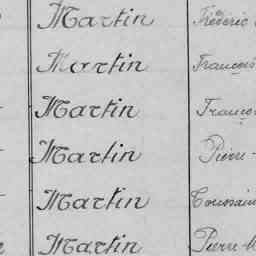 Martin Frédéric
Martin François
Martin Franço
Martin Pierre-
Martin Toussain
Martin Pierre-M